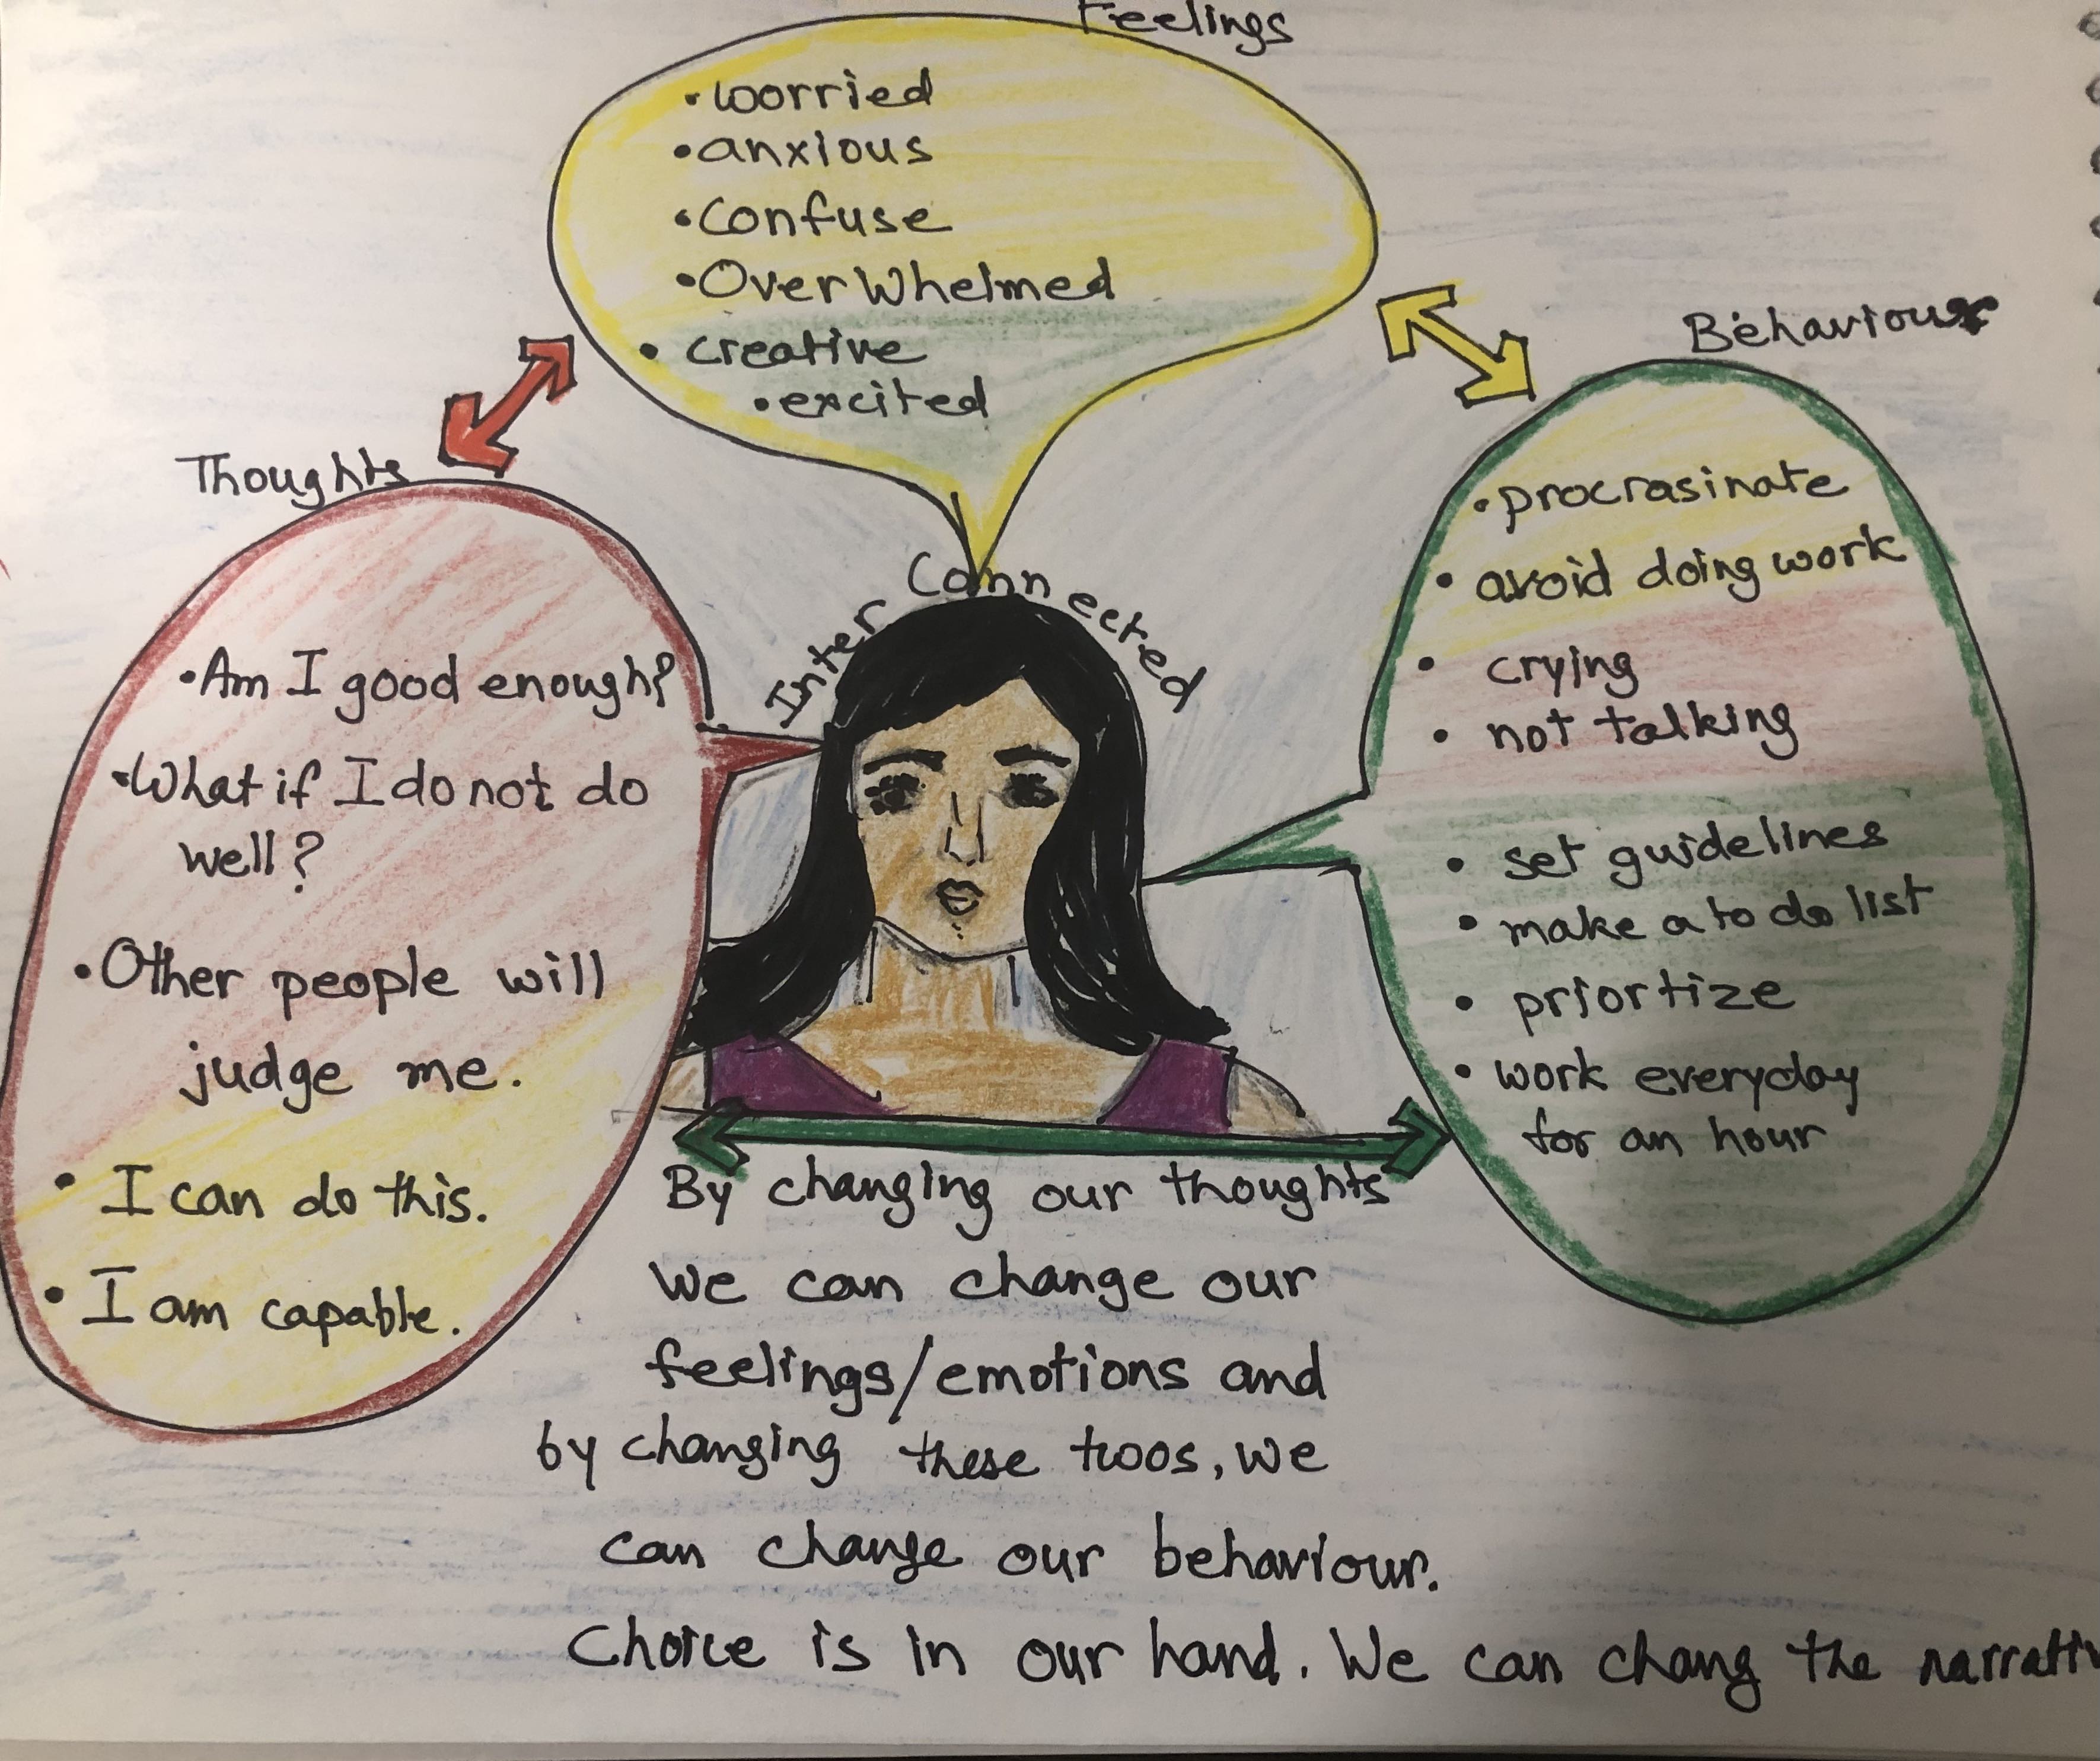 Feelings
• worried
• anxious
• Confuse
• Over Whelmed
• creative
• excited
Thoughts
• Am I good enough?
• What if I do not do
well?
• Other people will
judge me.
• I can do this.
• I am capable.
Inter Connected
Behaviour
• procrasinate
• avoid doing work
• crying
• not talking
• set guidelines
• make a to do list
• priortize
• work everyday
for an hour
By changing our thoughts
we can change our
feelings/emotions and
by changing these twos, we
can change our behaviour.
Choice is in our hand. We can chang the narrativ